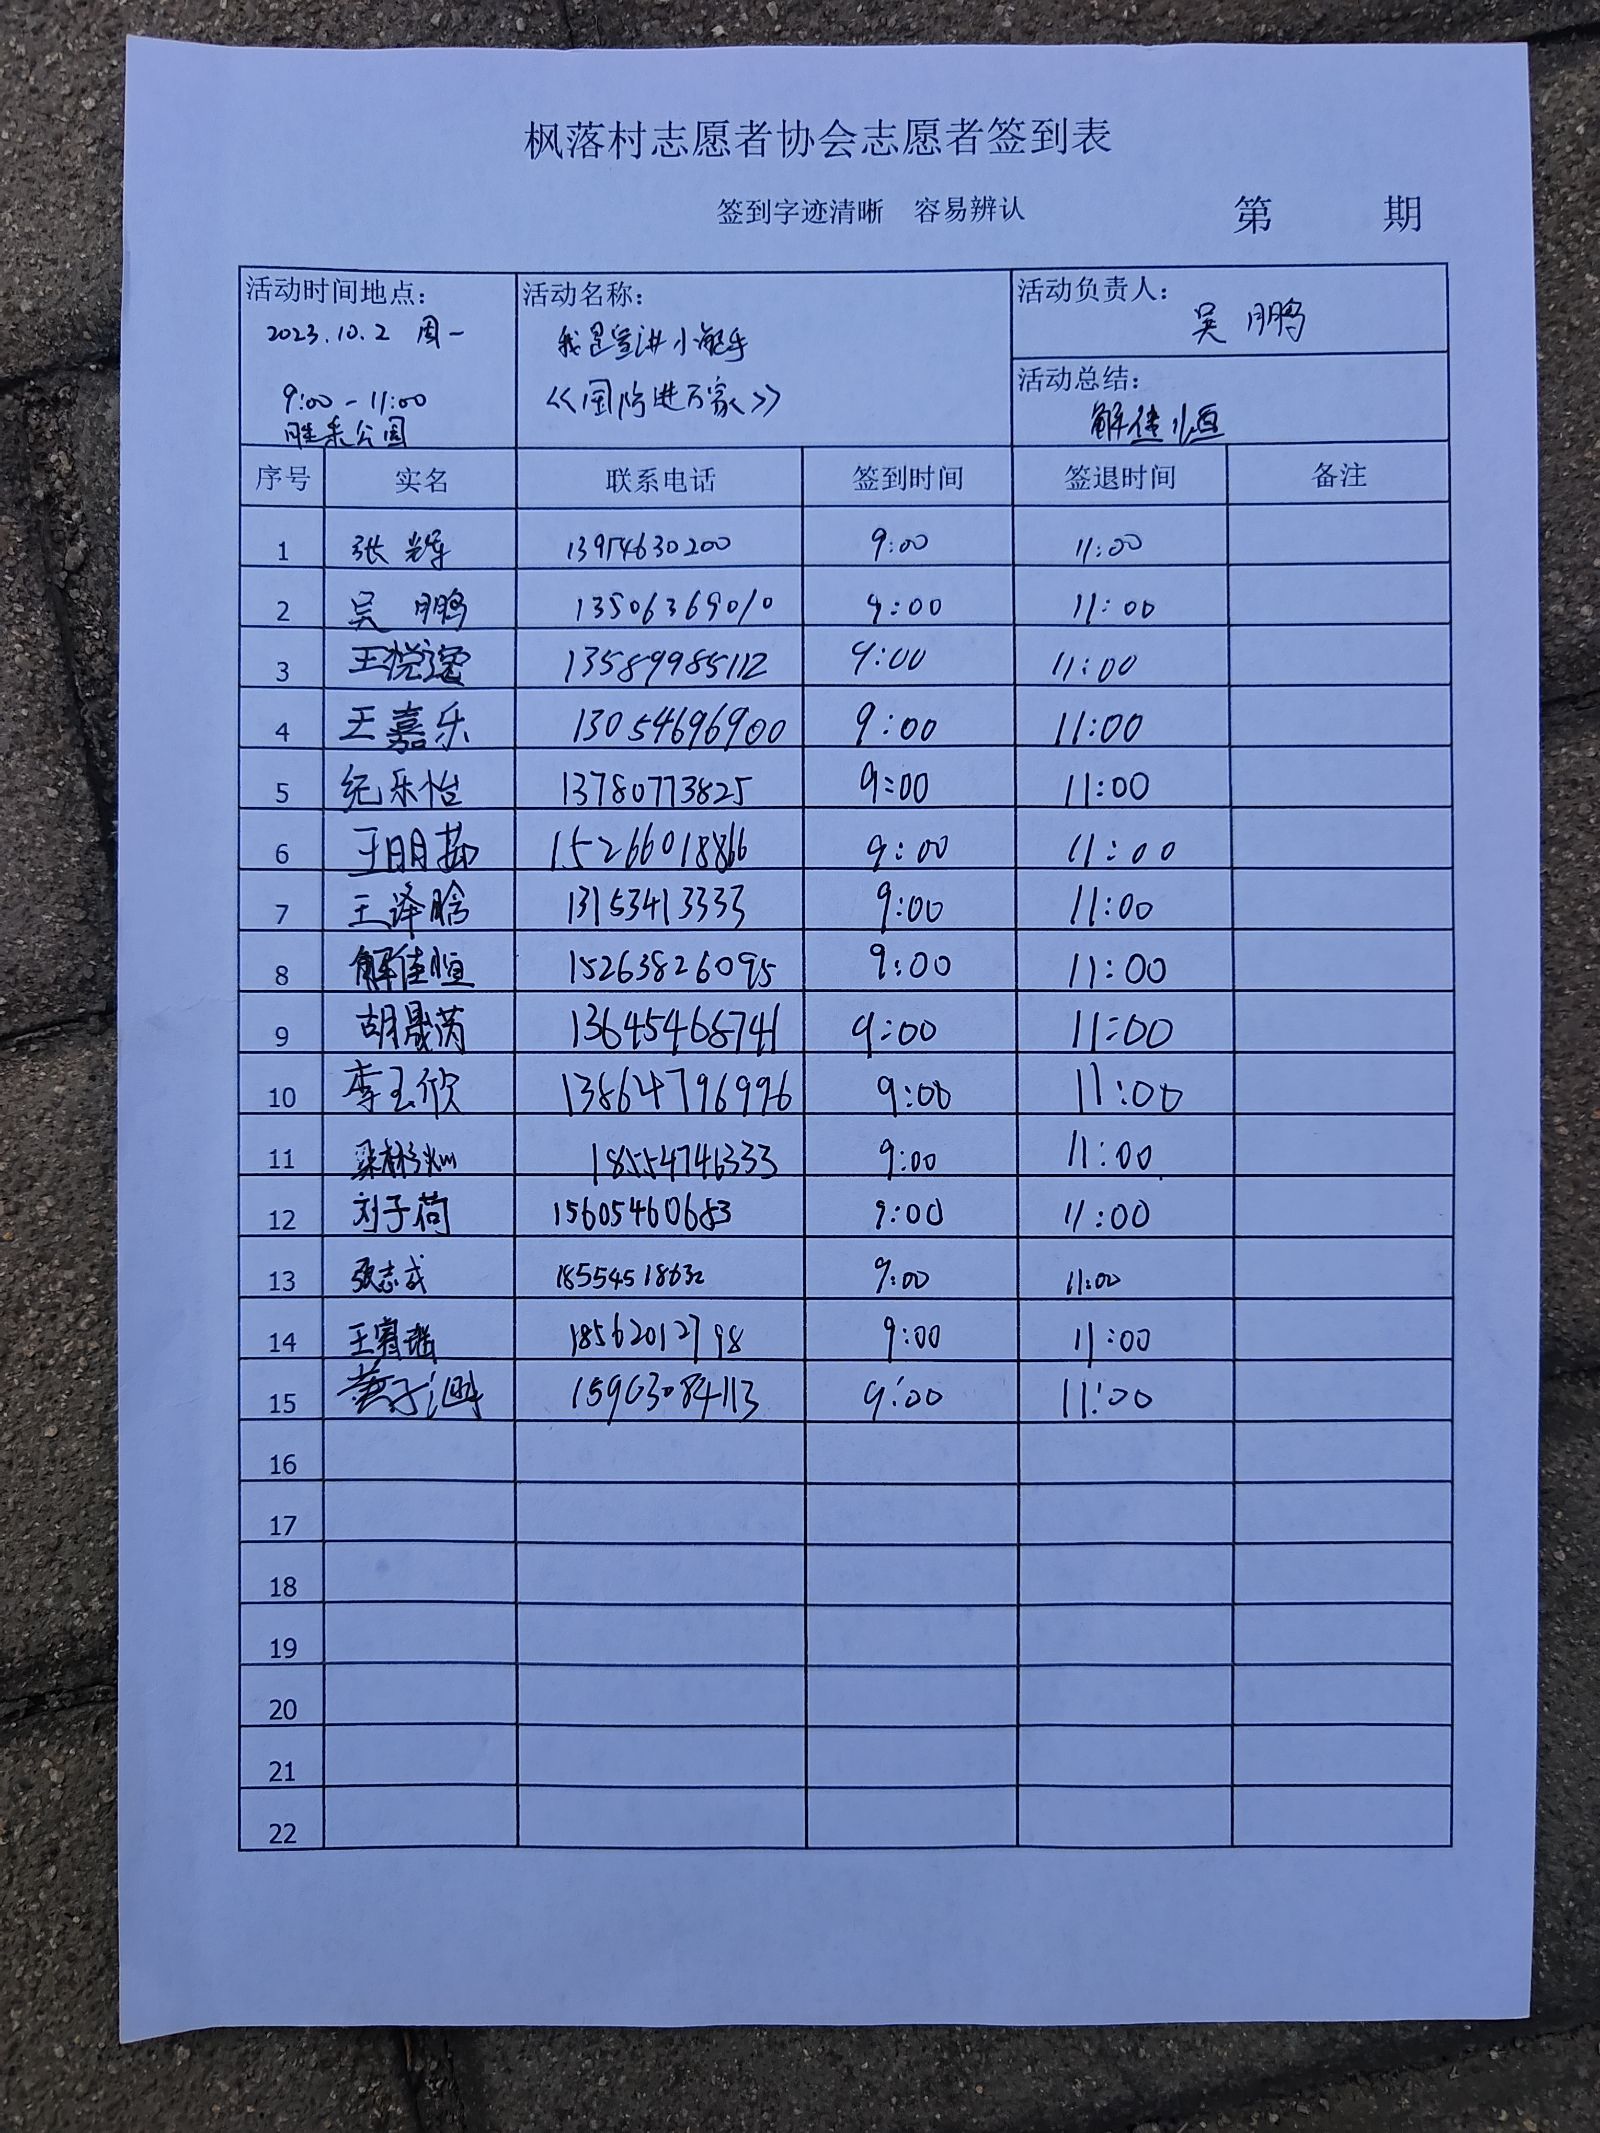 枫落村志愿者协会志愿者签到表
签到字迹清晰 容易辨认 第 期
活动时间地点： 活动名称： 活动负责人：
2023.10.2 周一 我是宣讲小能手 吴鹏
9:00-11:00 《国防进万家》 活动总结：
胜采公园 解佳恒
序号 实名 联系电话 签到时间 签退时间 备注
1 张辉 13954630200 9:00 11:00
2 吴鹏 13506369010 9:00 11:00
3 王悦逸 13589985112 9:00 11:00
4 王嘉乐 13054696900 9:00 11:00
5 纪乐怡 13780773825 9:00 11:00
6 王明 15266018866 9:00 11:00
7 王泽晗 13153413333 9:00 11:00
8 解佳恒 15263826095 9:00 11:00
9 胡晟茵 13645468741 9:00 11:00
10 李玉欣 13864796996 9:00 11:00
11 梁彬灿 18554746333 9:00 11:00
12 刘子荷 15605460683 9:00 11:00
13 张志成 18554518632 9:00 11:00
14 王睿瑶 18562012798 9:00 11:00
15 黄子 15963084113 9:00 11:00
16
17
18
19
20
21
22